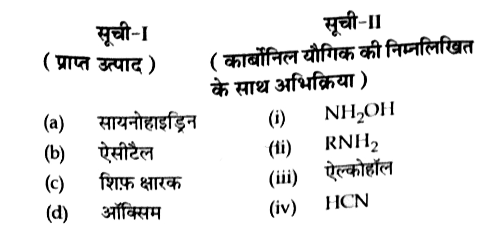 सूची-I
सूची-II
( प्राप्त उत्पाद )
( कार्बोनिल यौगिक की निम्नलिखित
के साथ अभिक्रिया )
(a) सायनोहाइड्रिन (i) NH₂OH
(b) ऐसीटैल (ii) RNH₂
(c) शिफ़ क्षारक (iii) ऐल्कोहॉल
(d) ऑक्सिम (iv) HCN